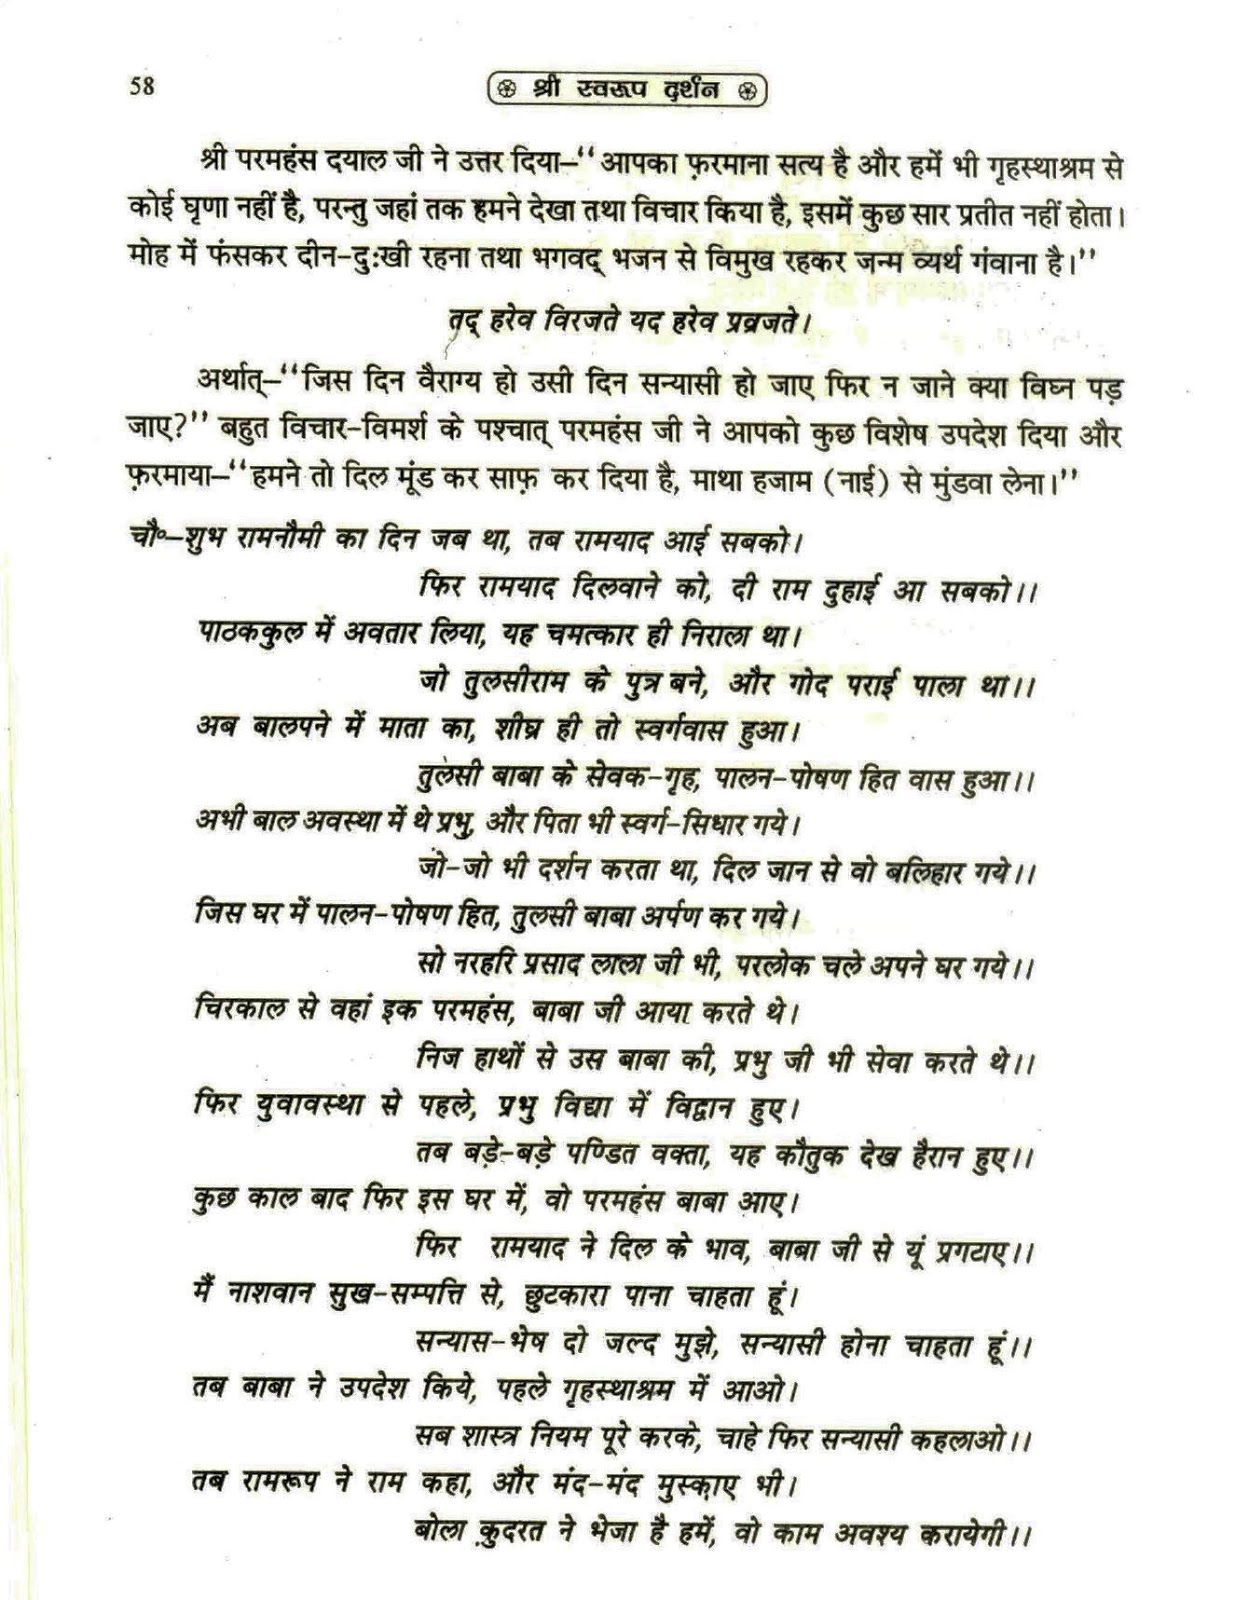 58
श्री स्वरूप दर्शन
श्री परमहंस दयाल जी ने उत्तर दिया–‘‘आपका फ़रमाना सत्य है और हमें भी गृहस्थाश्रम से
कोई घृणा नहीं है, परन्तु जहां तक हमने देखा तथा विचार किया है, इसमें कुछ सार प्रतीत नहीं होता।
मोह में फंसकर दीन-दुःखी रहना तथा भगवद् भजन से विमुख रहकर जन्म व्यर्थ गंवाना है।’’
तद् हरेव विरजते यद हरेव प्रव्रजते।
अर्थात्–‘‘जिस दिन वैराग्य हो उसी दिन सन्यासी हो जाए फिर न जाने क्या विघ्न पड़
जाए?’’ बहुत विचार-विमर्श के पश्चात् परमहंस जी ने आपको कुछ विशेष उपदेश दिया और
फ़रमाया–‘‘हमने तो दिल मूंड कर साफ़ कर दिया है, माथा हजाम (नाई) से मुंडवा लेना।’’
चौ॰–शुभ रामनौमी का दिन जब था, तब रामयाद आई सबको।
फिर रामयाद दिलवाने को, दी राम दुहाई आ सबको।।
पाठककुल में अवतार लिया, यह चमत्कार ही निराला था।
जो तुलसीराम के पुत्र बने, और गोद पराई पाला था।।
अब बालपने में माता का, शीघ्र ही तो स्वर्गवास हुआ।
तुलसी बाबा के सेवक-गृह, पालन-पोषण हित वास हुआ।।
अभी बाल अवस्था में थे प्रभु, और पिता भी स्वर्ग-सिधार गये।
जो-जो भी दर्शन करता था, दिल जान से वो बलिहार गये।।
जिस घर में पालन-पोषण हित, तुलसी बाबा अर्पण कर गये।
सो नरहरि प्रसाद लाला जी भी, परलोक चले अपने घर गये।।
चिरकाल से वहां इक परमहंस, बाबा जी आया करते थे।
निज हाथों से उस बाबा की, प्रभु जी भी सेवा करते थे।।
फिर युवावस्था से पहले, प्रभु विद्या में विद्वान हुए।
तब बड़े-बड़े पण्डित वक्ता, यह कौतुक देख हैरान हुए।।
कुछ काल बाद फिर इस घर में, वो परमहंस बाबा आए।
फिर रामयाद ने दिल के भाव, बाबा जी से यूं प्रगटाए।।
मैं नाशवान सुख-सम्पत्ति से, छुटकारा पाना चाहता हूं।
सन्यास-भेष दो जल्द मुझे, सन्यासी होना चाहता हूं।।
तब बाबा ने उपदेश किये, पहले गृहस्थाश्रम में आओ।
सब शास्त्र नियम पूरे करके, चाहे फिर सन्यासी कहलाओ।।
तब रामरूप ने राम कहा, और मंद-मंद मुस्काए भी।
बोला कुदरत ने भेजा है हमें, वो काम अवश्य करायेगी।।